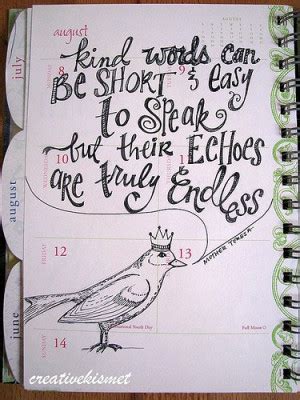 august
AUGUST
kind words can
8
BE SHORT & easy
to speak
july
but their ECHOES
10
are truly Endless
august
MOTHER TERESA
12
13
june
Full Moon
14
creativekismet